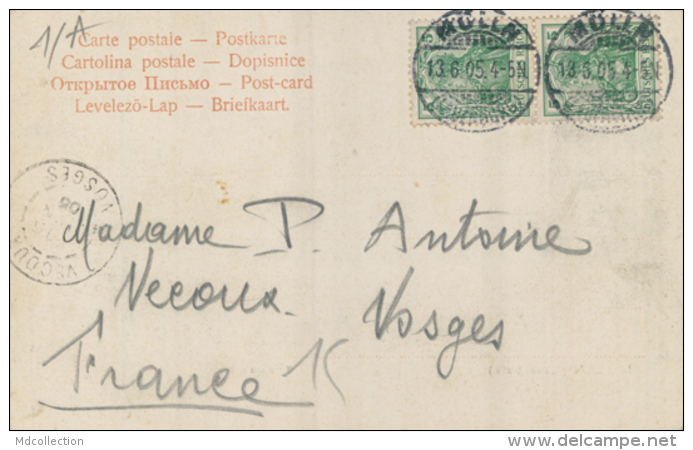 1/A
Carte postale — Postkarte
Cartolina postale — Dopisnice
Открытое Письмо — Post-card
Levelező-Lap — Briefkaart.
MÖLLN
13.6.05.4-5N
MÖLLN
13.6.05.4-
5
5
VOSGES
05
VECOUX
Madame P. Antoine
Vecoux. Vosges
France
Mdcollection
delcampe.net